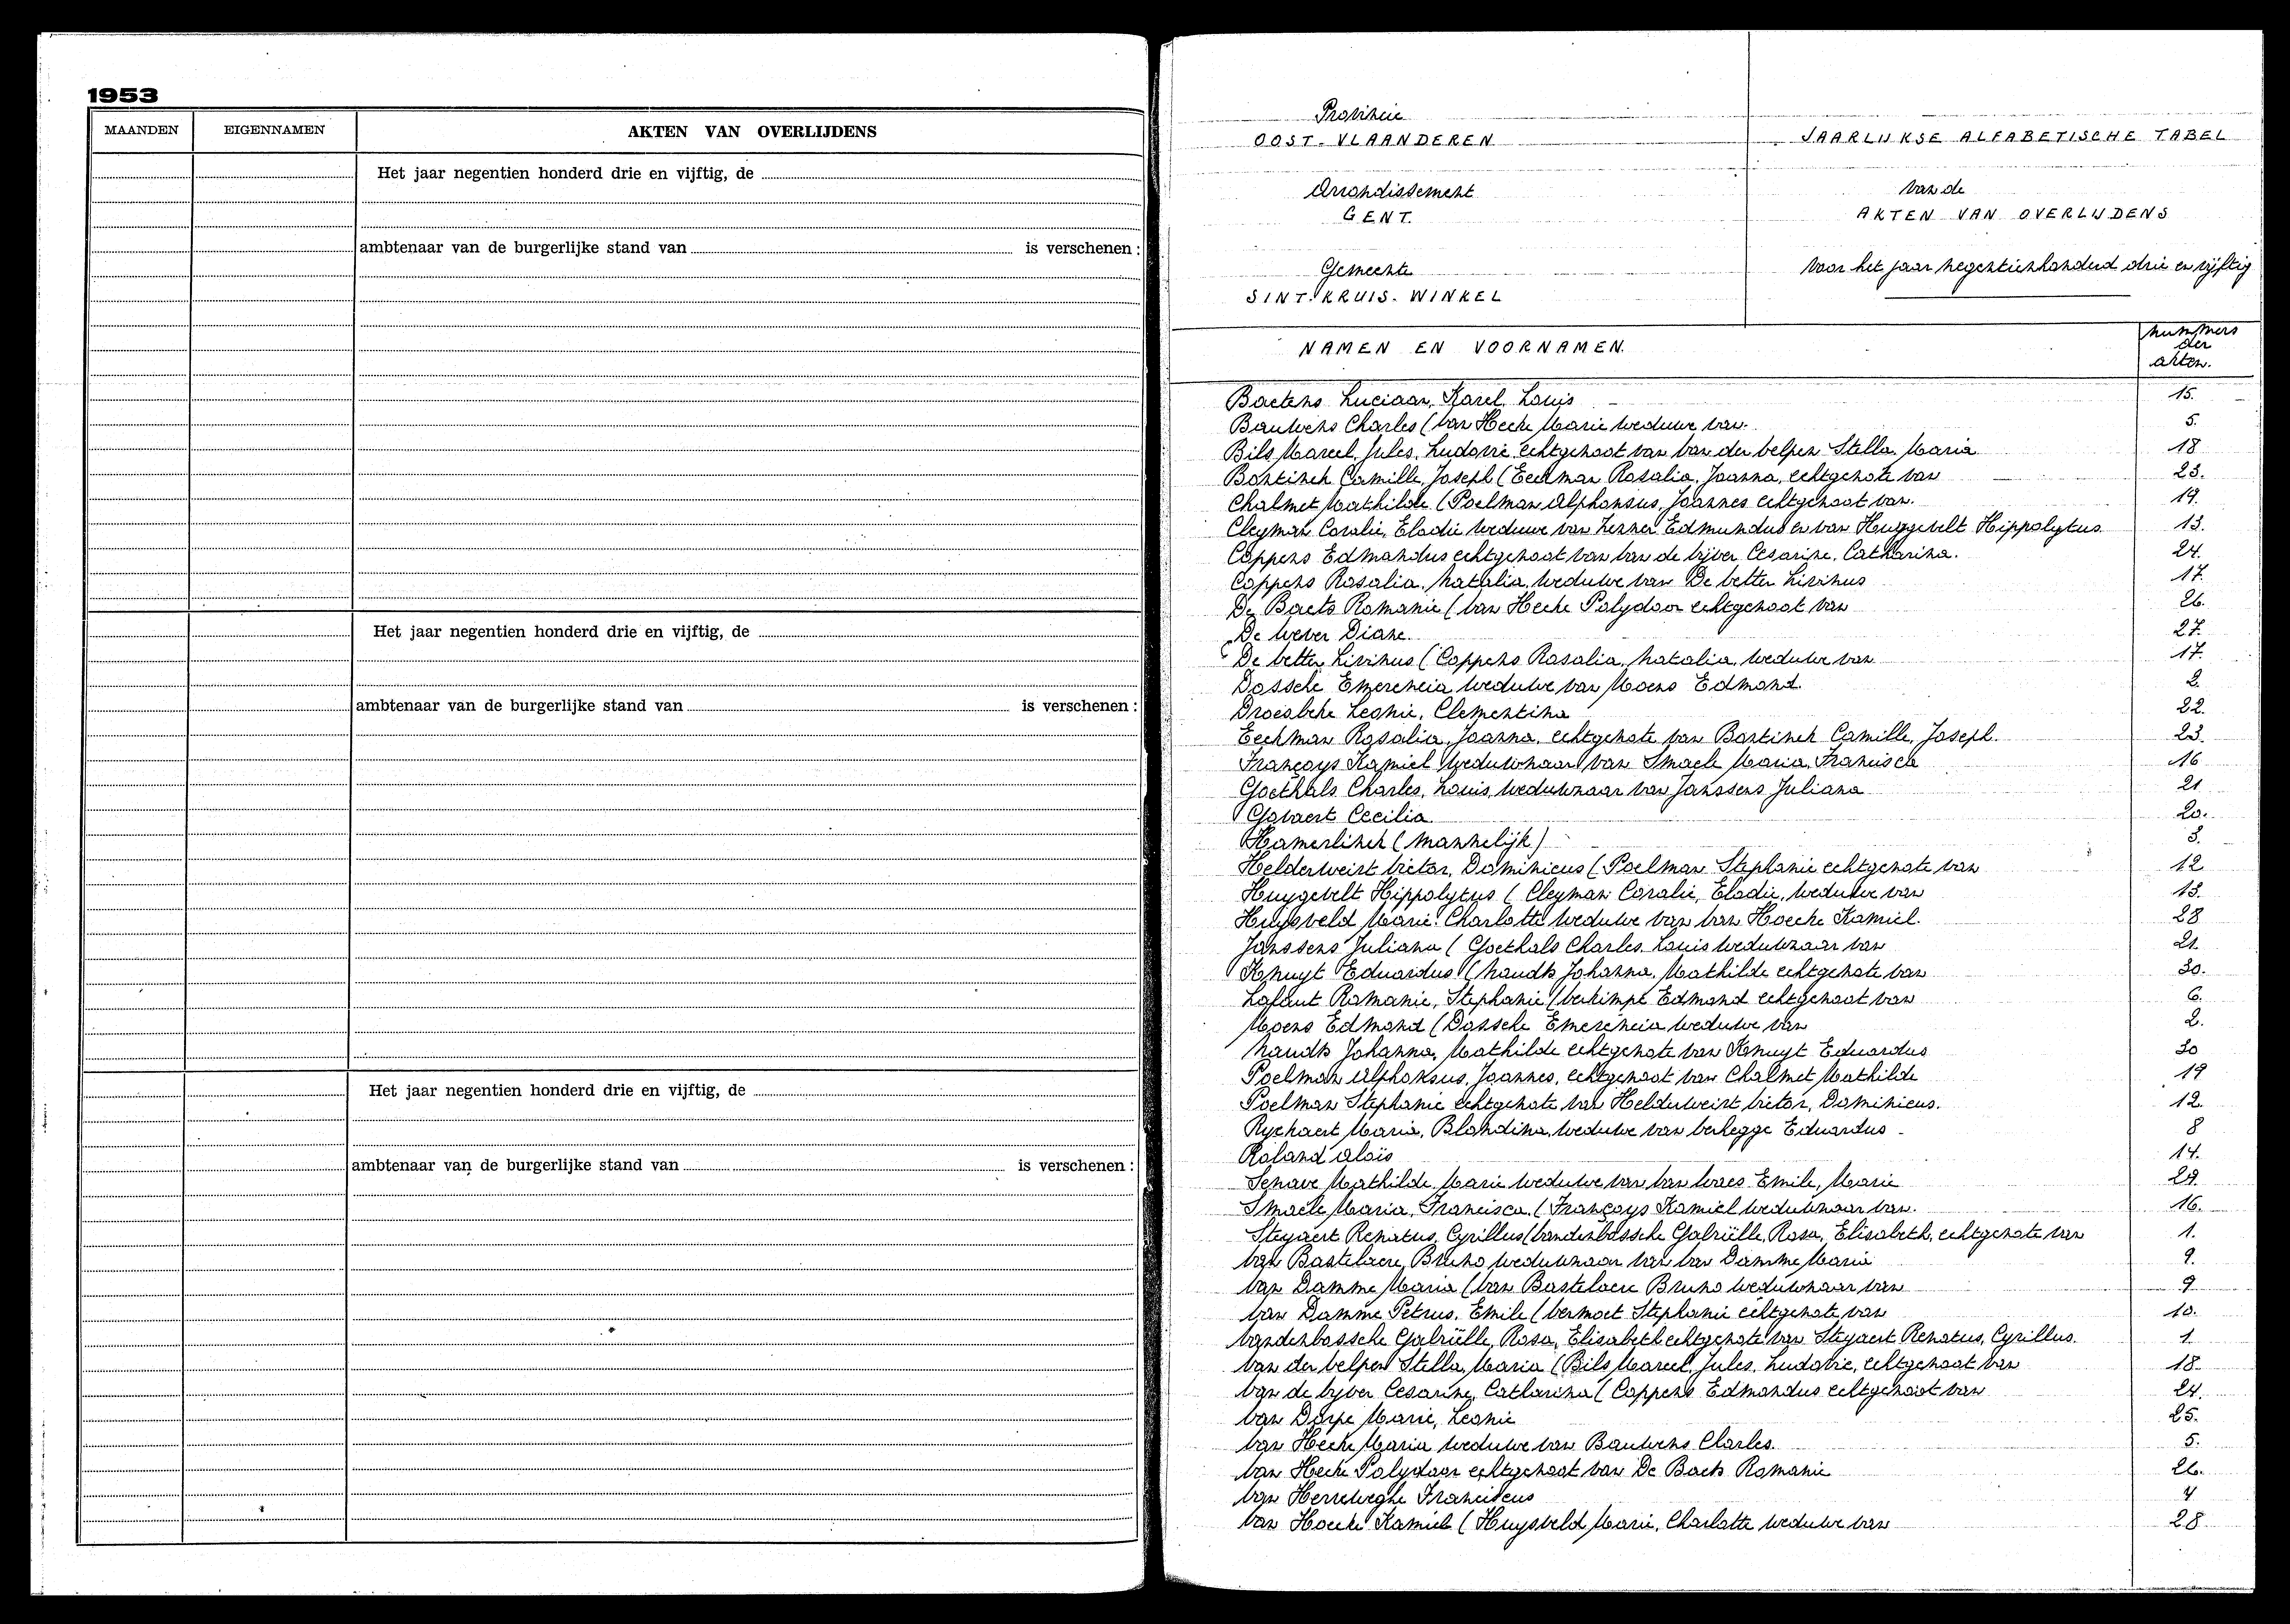 1953
MAANDEN EIGENNAMEN AKTEN VAN OVERLIJDENS
Het jaar negentien honderd drie en vijftig, de
ambtenaar van de burgerlijke stand van is verschenen :
Het jaar negentien honderd drie en vijftig, de
ambtenaar van de burgerlijke stand van is verschenen :
Het jaar negentien honderd drie en vijftig, de
ambtenaar van de burgerlijke stand van is verschenen :
Provincie
OOST-VLAANDEREN
Arrondissement
GENT.
Gemeente
SINT-KRUIS-WINKEL
JAARLIJKSE ALFABETISCHE TABEL
van de
AKTEN VAN OVERLIJDENS
Voor het jaar negentienhonderd drie en vijftig
NAMEN EN VOORNAMEN. Nummers der akten.
Baetens Luciaan, Karel, Louis 15.
Bauwens Charles (Van Hecke Marie weduwe van. 5.
Bils Marcel, Jules, Ludovic echtgenoot van Van der Velpen Stella, Maria 18
Bontinck Camille, Joseph (Eeckman Rosalia, Joanna, echtgenote van 23.
Chalmet Mathilde (Poelman Alphonsus, Joannes echtgenoot van. 19.
Cleyman Coralie, Elodie weduwe van Edmundus en van Huygevelt Hippolytus 13.
Coppens Edmondus echtgenoot van Van de Vyver Cesarine, Catharina. 24.
Coppens Rosalia, Natalia, weduwe van De Vetter Livinus 17.
De Baets Romanie (Van Hecke Polydoor echtgenoot van 26.
De Wever Diane. 27.
De Vetter Livinus (Coppens Rosalia, Natalia, weduwe van 17.
Dossche Emerencia weduwe van Moens Edmond. 2.
Droesbeke Leonie, Clementina 22.
Eeckman Rosalia, Joanna, echtgenote van Bontinck Camille, Joseph. 23.
Françoys Kamiel weduwnaar van Smaele Maria, Francisca 16
Goethals Charles, Louis, weduwnaar van Janssens Juliana 21
Govaert Cecilia 20.
Hamerlinck (mannelijk) 3.
Helderweirt Victor, Dominicus (Poelman Stephanie echtgenote van 12
Huygevelt Hippolytus (Cleyman Coralie, Elodie, weduwe van 13.
Huysveld Marie, Charlotte weduwe van Van Hoecke Kamiel. 28
Janssens Juliana (Goethals Charles, Louis weduwnaar van 21.
Knuyt Eduardus (Naudts Johanna, Mathilde echtgenote van 30.
Lafaut Romanie, Stephanie (Verkimpe Edmond echtgenoot van 6.
Moens Edmond (Dossche Emerencia weduwe van 2.
Naudts Johanna, Mathilde echtgenote van Knuyt Eduardus 30
Poelman Alphonsus, Joannes, echtgenoot van Chalmet Mathilde 19
Poelman Stephanie echtgenote van Helderweirt Victor, Dominicus. 12.
Ryckaert Maria, Blandina, weduwe van Verhegge Eduardus 8
Roland Alois 14.
Senave Mathilde, Marie weduwe van Van Waes Emile, Marie 29.
Smaele Maria, Francisca, (Françoys Kamiel weduwnaar van. 16.
Steyaert Renatus, Cyrillus (Vandenbossche Gabriëlle, Rosa, Elisabeth, echtgenote van 1.
Van Bastelaere Bruno weduwnaar van Van Damme Maria 9.
Van Damme Maria (Van Bastelaere Bruno weduwnaar van 9
Van Damme Petrus, Emile (Vermoet Stephanie echtgenote van 10.
Vandenbossche Gabriëlle, Rosa, Elisabeth echtgenote van Steyaert Renatus, Cyrillus. 1.
Van der Velpen Stella, Maria (Bils Marcel, Jules, Ludovic, echtgenoot van 18.
Van de Vyver Cesarine, Catharina (Coppens Edmondus echtgenoot van 24.
Van Dorpe Marie, Leonie 25.
Van Hecke Maria weduwe van Bauwens Charles. 5.
Van Hecke Polydoor echtgenoot van De Baets Romanie 26.
Van Herreweghe Franciscus 4
Van Hoecke Kamiel (Huysveld Marie, Charlotte weduwe van 28